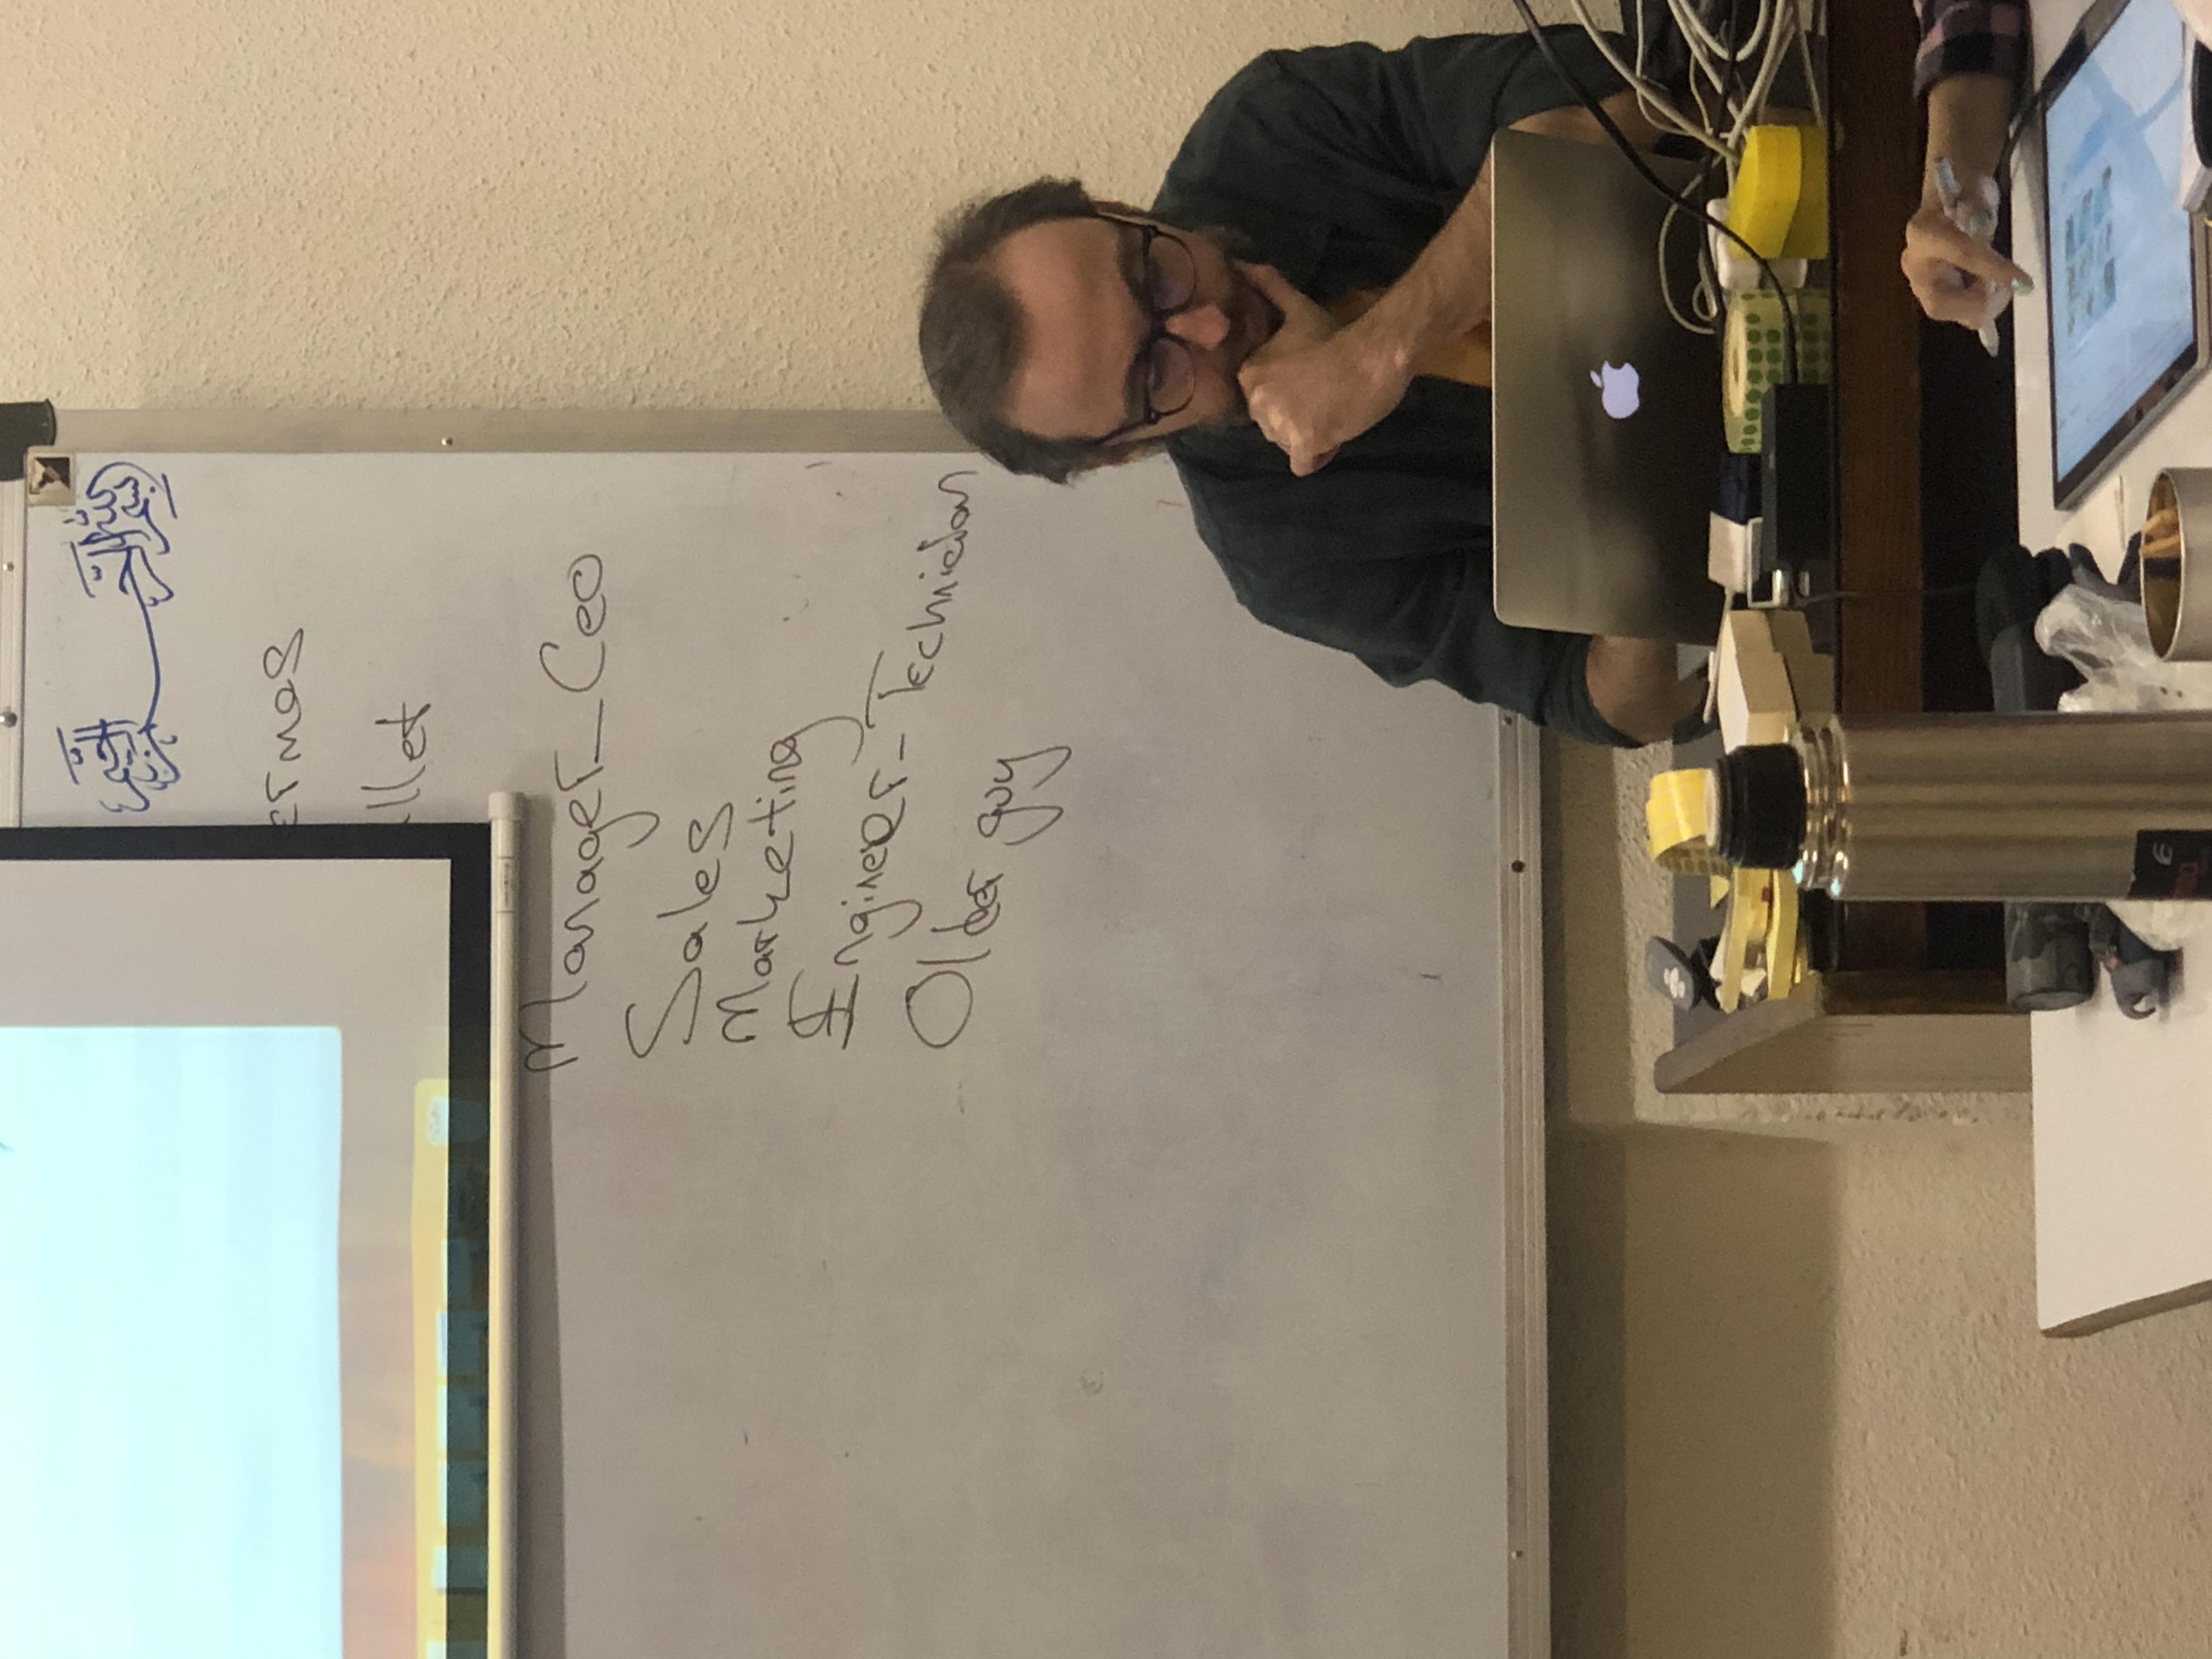 بسم الله الرحمن الرحيم
ermes
llet
Manager_Ceo
Sales
Marketing
Engineer-Technician
Older guy